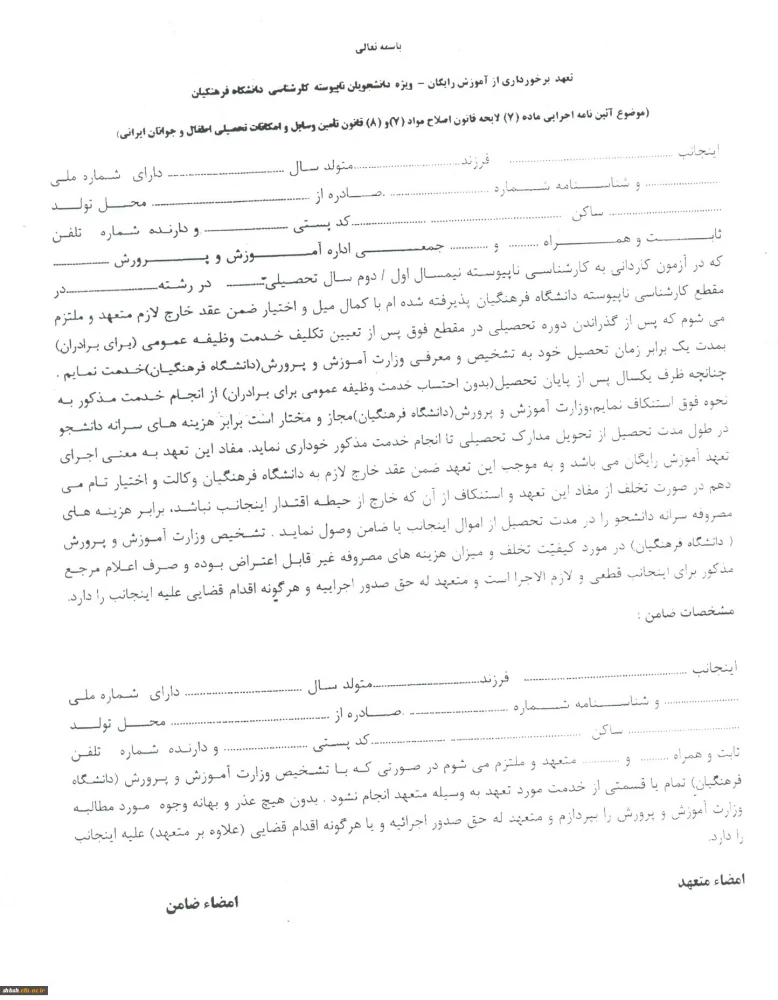 باسمه تعالی
تعهد برخورداری از آموزش رایگان – ویژه دانشجویان ناپیوسته کارشناسی دانشگاه فرهنگیان
(موضوع آئین نامه اجرایی ماده (۷) لایحه قانون اصلاح مواد (۷) و (۸) قانون تأمین وسایل و امکانات تحصیلی اطفال و جوانان ایرانی)
اینجانب .................... فرزند .................... متولد سال .................... دارای شماره ملی
.................... و شناسنامه شماره .................... صادره از .................... محل تولد
.................... ساکن .................... کد پستی .................... و دارنده شماره تلفن
ثابت و همراه .......... و .......... جمعی اداره آموزش و پرورش ..........
که در آزمون کاردانی به کارشناسی ناپیوسته نیمسال اول / دوم سال تحصیلی .......... در رشته .......... در
مقطع کارشناسی ناپیوسته دانشگاه فرهنگیان پذیرفته شده ام با کمال میل و اختیار ضمن عقد خارج لازم متعهد و ملتزم
می شوم که پس از گذراندن دوره تحصیلی در مقطع فوق پس از تعیین تکلیف خدمت وظیفه عمومی (برای برادران)
بمدت یک برابر زمان تحصیل خود به تشخیص و معرفی وزارت آموزش و پرورش(دانشگاه فرهنگیان)خدمت نمایم .
چنانچه ظرف یکسال پس از پایان تحصیل(بدون احتساب خدمت وظیفه عمومی برای برادران) از انجام خدمت مذکور به
نحوه فوق استنکاف نمایم،وزارت آموزش و پرورش(دانشگاه فرهنگیان)مجاز و مختار است برابر هزینه های سرانه دانشجو
در طول مدت تحصیل از تحویل مدارک تحصیلی تا انجام خدمت مذکور خوداری نماید. مفاد این تعهد به معنی اجرای
تعهد آموزش رایگان می باشد و به موجب این تعهد ضمن عقد خارج لازم به دانشگاه فرهنگیان وکالت و اختیار تام می
دهم در صورت تخلف از مفاد این تعهد و استنکاف از آن که خارج از حیطه اقتدار اینجانب نباشد، برابر هزینه های
مصروفه سرانه دانشجو را در مدت تحصیل از اموال اینجانب یا ضامن وصول نماید . تشخیص وزارت آموزش و پرورش
( دانشگاه فرهنگیان) در مورد کیفیت تخلف و میزان هزینه های مصروفه غیر قابل اعتراض بوده و صرف اعلام مرجع
مذکور برای اینجانب قطعی و لازم الاجرا است و متعهد له حق صدور اجراییه و هرگونه اقدام قضایی علیه اینجانب را دارد.
مشخصات ضامن :
اینجانب .................... فرزند .................... متولد سال .................... دارای شماره ملی
.................... و شناسنامه شماره .................... صادره از .................... محل تولد
.................... ساکن .................... کد پستی .................... و دارنده شماره تلفن
ثابت و همراه .......... و .......... متعهد و ملتزم می شوم در صورتی که با تشخیص وزارت آموزش و پرورش (دانشگاه
فرهنگیان) تمام یا قسمتی از خدمت مورد تعهد به وسیله متعهد انجام نشود . بدون هیچ عذر و بهانه وجوه مورد مطالبه
وزارت آموزش و پرورش را بپردازم و متعهد له حق صدور اجرائیه و یا هرگونه اقدام قضایی (علاوه بر متعهد) علیه اینجانب
را دارد.
امضاء متعهد
امضاء ضامن